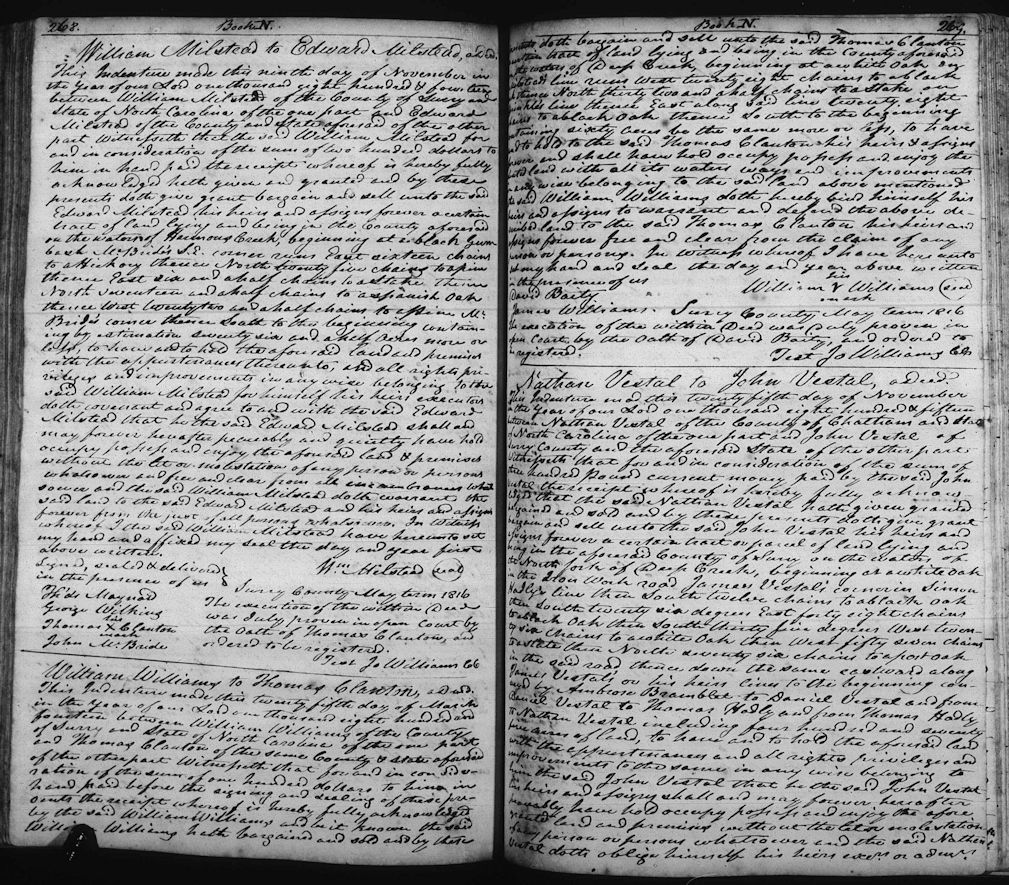 268. Book N.
William Milstead to Edward Milstead, a deed.
This Indenture made this ninth day of November in
the year of our Lod one thousand eight hundred & fourteen
between William Milstead of the County of Surry and
State of North Carolina of the one part and Edward
Milstead of the County and State aforesaid of the other
part Witnesseth that the said William Milsted for
and in consideration of the sum of two hundred dollars to
him in hand paid the receipt whereof is hereby fully
acknowledged hath given and granted and by these
presents doth give grant bargain and sell unto the said
Edward Milstead his heirs and assigns forever a certain
tract of land lying and being in the County aforesaid
on the waters of Creek, beginning at a black gum
McBrides S.E. corner runs East sixteen chains
to a hickory thence North twenty five chains to a pine
thence East six and a half chains to a stake thence
North seventeen and a half chains to a spanish oak
thence West twenty two and a half chains to a pine Mc
Brids corner thence South to the beginning contain-
ing by estimation seventy six and a half acres more or
less, to have and to hold the aforesaid land and premises
with the appurtenances thereunto, and all rights pri-
vileges and improvements in any wise belonging to the
said William Milsted for himself his heirs executors
doth covenant and agree to and with the said Edward
Milstead that he the said Edward Milsted shall and
may forever hereafter peaceably and quietly have hold
occupy possess and enjoy the aforesaid land & premises
without the let or molestation of any person or persons
whatsoever and free and clear from all incumbrances what
soever and the said William Milstead doth warrant the
said land to the said Edward Milstead and his heirs and assigns
forever from the just of all persons whatsoever. In Witness
whereof I the said William Milstead have hereunto set
my hand and affixed my seal the day and year first
above written.
Signd, seald & delivered
in the presence of us
Wm Milstead seal
Thos Maynard
George Wilking
his
Thomas X Clanton
mark
John McBride
Surry County May term 1816
The execution of the within Deed
was duly proven in open Court by
the Oath of Thomas Clanton, and
ordered to be registered.
Test Jo Williams CC
William Williams to Thomas Clanton, a deed.
This Indenture made this twenty fifth day of March
in the year of our Lord one thousand eight hundred and
fourteen between William Williams of the County
of Surry and State of North Carolina of the one part
and Thomas Clanton of the same County & State aforesaid
of the other part Witnesseth that for and in conside-
ration of the sum of one hundred dollars to him in
hand paid before the signing and sealing of these pre-
sents the receipt whereof is hereby fully acknowledged
by the said William Williams and he the said
William Williams hath bargained and sold and by these
Book N. 269.
presents doth bargain and sell unto the said Thomas Clanton
certain tract of land lying and being in the County aforesaid
on the waters of Deep Creek, beginning at a white Oak on
line runs West twenty eight chains to a black
thence North thirty two and a half chains to a stake on
line thence East along said line twenty eight
chains to a black Oak thence South to the beginning
containing sixty acres be the same more or less, to have
and to hold to the said Thomas Clanton his heirs & assigns
forever and shall have hold occupy possess and enjoy the
said land with all its waters ways and improvements
in any wise belonging to the said land above mentioned
the said William Williams doth hereby bind himself his
heirs and assigns to warrant and defend the above de-
scribed land to the said Thomas Clanton his heirs and
assigns forever free and clear from the claim of any
person or persons. In Witness whereof I have here unto
set my hand and seal the day and year above written
in the presence of us
his
William X Williams (seal
mark
David Baity
James Williams. Surry County May term 1816
The execution of the within Deed was duly proven in
open Court, by the Oath of David Baity, and ordered to
be registered.
Test Jo Williams Clk
Nathan Vestal to John Vestal, a deed.
This Indenture mad this twenty fifth day of November
in the year of our Lod one thousand eight hundred & fifteen
between Nathan Vestal of the County of Chatham and State
of North Carolina of the one part and John Vestal of
Surry County and the aforesaid State of the other part.
Witnesseth that for and in consideration of the sum of
hundred pounds current money paid by the said John
Vestal the receipt whereof is hereby fully acknow-
ledged that the said Nathan Vestal hath given granted
bargained and sold and by these presents doth give grant
bargain and sell unto the said John Vestal his heirs and
assigns forever a certain tract or parcel of land lying and
being in the aforesaid County of Surry on the waters of
the North fork of Deep Creek, beginning at a white oak
in the Iron Work road James Vestals corner in Simon
Hadlys line then South twelve chains to a black oak
then South twenty six degrees East forty eight chains
to a black Oak then South thirty five degrees West twen-
ty six chains to a white Oak then West fifty seven chains
to a stake then North seventy six chains to a post oak
in the said road thence down the same eastward along
James Vestals or his heirs lines to the beginning con-
veyd by Ambrose Bramblet to Daniel Vestal and from
Daniel Vestal to Thomas Hadly and from Thomas Hadly
to Nathan Vestal including four hundred and seventy
acres of land, to have and to hold the aforesaid land
with the appurtenances and all rights privileges and
improvements to the same in any wise belonging to
him the said John Vestal that he the said John Vestal
his heirs and assigns shall and may forever hereafter
peaceably have hold occupy possess and enjoy the afore
said land and premises without the let or molestation
of any person or persons whatsoever and the said Nathan
Vestal doth oblige himself his heirs exers or admrs